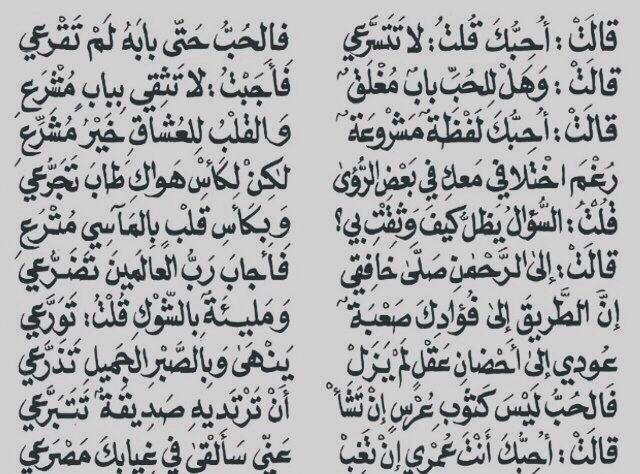 قالَتْ : أُحِبُّكَ قُلتُ : لا تَتَسَرَّعي فالحُبُّ حَتّى بابَهُ لَمْ تَقْرَعي
قالتْ : وَهَلْ لِلحُبِّ بابٌ مُغْلَقٌ فَأَجَبْتُ : لا تَثِقِي ببابٍ مُشْرَعِ
قالتْ : أُحِبُّكَ لَفْظَةٌ مَشْروعَةٌ وَالقَلْبُ لِلعُشّاقِ خَيْرُ مُشَرِّعِ
رُغْمَ اختلافي مَعكِ في بَعْضِ الرُّؤىٰ لكِنْ لِكَأسْ هَواكِ طابَ تَجَرُّعي
قُلْتُ : السُّؤالُ يظَلُّ كيفَ وَثقْتِ بي؟ وَبِكأسِ قلْبٍ بِالمَآسِي مُتْرَعِ
قالَتْ : إلىٰ الرَّحْمٰنِ صَلّىٰ خافِقِي فَأجابَ رَبُّ العالَمِينَ تَضَرُّعي
إنَّ الطَّرِيقَ إلىٰ فُؤادِكَ صَعْبةٌ وَمَليئَةٌ بالشَّوْكِ قُلْتُ : تَوَرَّعي
عُودِي إلىٰ أحْضانِ عَقْلٍ لَمْ يَزَلْ يَنْهىٰ وَبالصَّبْرِ الجَميلِ تَذَرَّعي
فَالحُبُّ لَيْسَ كَثَوْبِ عُرْسٍ إنْ تَشَأْ أنْ تَرْتَديهِ صَديقَةٌ تَتَبرَّعي
قالَتْ : أُحبُّكَ أنتَ عُمْري إنْ تَغِبْ عَنِّي سَأَلْقىٰ في غِيابِكَ مَصْرَعي